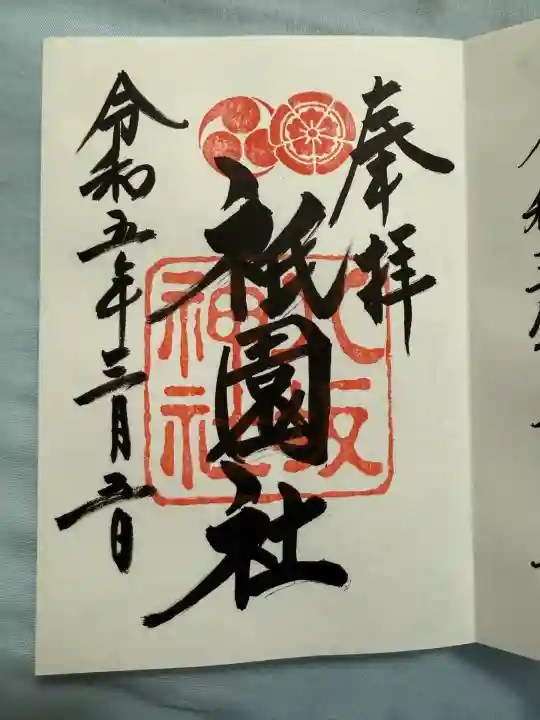 奉拝
祇園社
八坂
神社
令和五年三月三日